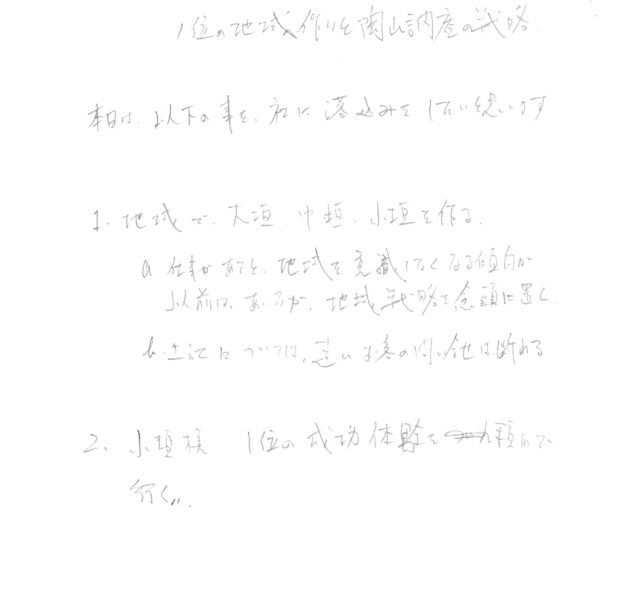 1位の地域作りと陶山訥庵の戦略
本日は、以下の事を、私に落込みを していきます
1. 地域で、大垣、中垣、小垣を作る。
a 仕事があると、地域を意識しなくなる傾向が
以前は、あったが、地域戦略を念頭に置く。
b. については、遠いお客の問い合せは断れる
2. 小規模 1位の成功体験を 積んで
行く。